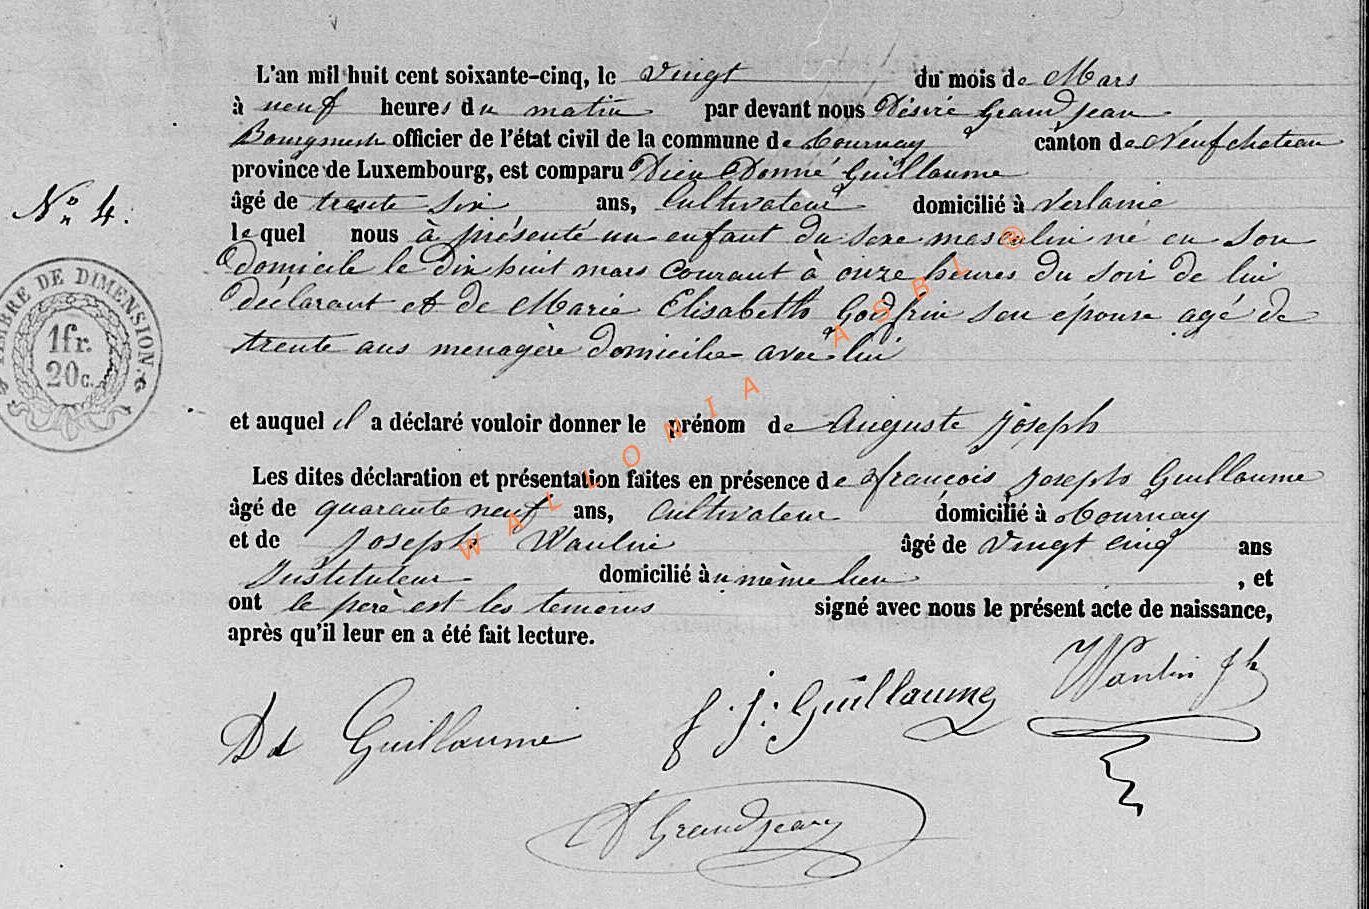 L'an mil huit cent soixante-cinq, le vingt du mois de Mars
à neuf heures du matin par devant nous Désiré Grandjean
Bourgmestre officier de l'état civil de la commune de Tournay canton de Neufchateau
province de Luxembourg, est comparu Dieu Donné Guillaume
âgé de trente six ans, Cultivateur domicilié à Verlaine
N° 4.
le quel nous à présenté un enfant du sexe masculin né en son
domicile le dix huit mars courant à onze heures du soir de lui
déclarant et de Marie Elisabeth Godfrin son épouse agé de
trente ans menagère domicilie avec lui
TIMBRE DE DIMENSION. G
1fr.
20c.
et auquel il a déclaré vouloir donner le prénom de Auguste Joseph
Les dites déclaration et présentation faites en présence de françois Joseph Guillaume
âgé de quarante neuf ans, Cultivateur domicilié à Tournay
et de Joseph Waulin âgé de vingt cinq ans
Instituteur domicilié àu même lieu , et
ont le père est les temoins signé avec nous le présent acte de naissance,
après qu'il leur en a été fait lecture.
WALLONIA ASBL ©
Dd Guillaume f. j: Guillaume Waulin Jh
D Grandjean